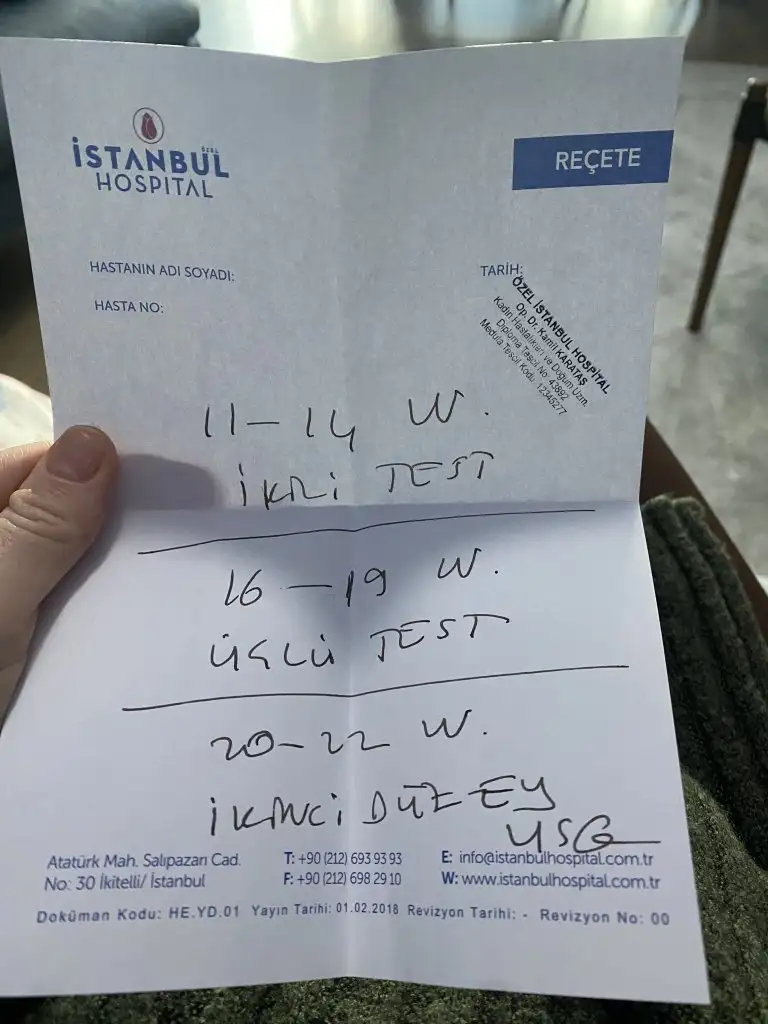 ÖZEL
İSTANBUL
HOSPITAL
REÇETE
HASTANIN ADI SOYADI:
TARİH:
HASTA NO:
ÖZEL İSTANBUL HOSPITAL
Op. Dr. Kamil KARATAŞ
Kadın Hastalıkları ve Doğum Uzm.
Diploma Tescil No: 43892
Medula Tescil Kodu: 12345277
11-14 W.
İKİLİ TEST
16-19 W.
ÜÇLÜ TEST
20-22 W.
İKİNCİ DÜZEY
USG
Atatürk Mah. Salıpazarı Cad.
No: 30 İkitelli/ İstanbul
T: +90 (212) 693 93 93
F: +90 (212) 698 29 10
E: info@istanbulhospital.com.tr
W: www.istanbulhospital.com.tr
Doküman Kodu: HE.YD.01 Yayın Tarihi: 01.02.2018 Revizyon Tarihi: - Revizyon No: 00